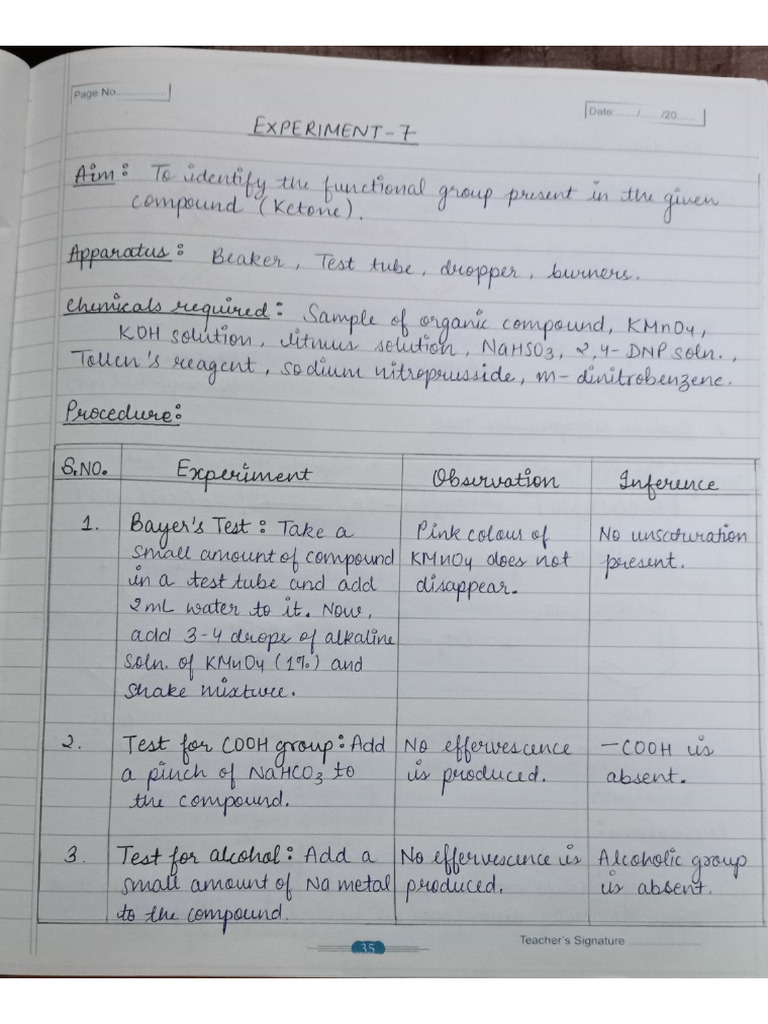 Page No...............
Date:......./......./20......
EXPERIMENT-7
Aim: To identify the functional group present in the given
compound (Ketone).
Apparatus: Beaker, Test tube, dropper, burners.
Chemicals required: Sample of organic compound, KMnO4,
KOH solution, litmus solution, NaHSO3, 2,4-DNP soln.,
Tollen's reagent, sodium nitroprusside, m-dinitrobenzene.
Procedure:
S.NO. Experiment Observation Inference
1. Bayer's Test: Take a Pink colour of No unsaturation
small amount of compound KMnO4 does not present.
in a test tube and add disappear.
2mL water to it. Now,
add 3-4 drops of alkaline
soln. of KMnO4 (1%) and
shake mixture.
2. Test for COOH group: Add No effervescence -COOH is
a pinch of NaHCO3 to is produced. absent.
the compound.
3. Test for alcohol: Add a No effervescence is Alcoholic group
small amount of Na metal produced. is absent.
to the compound.
Teacher's Signature ...................
35